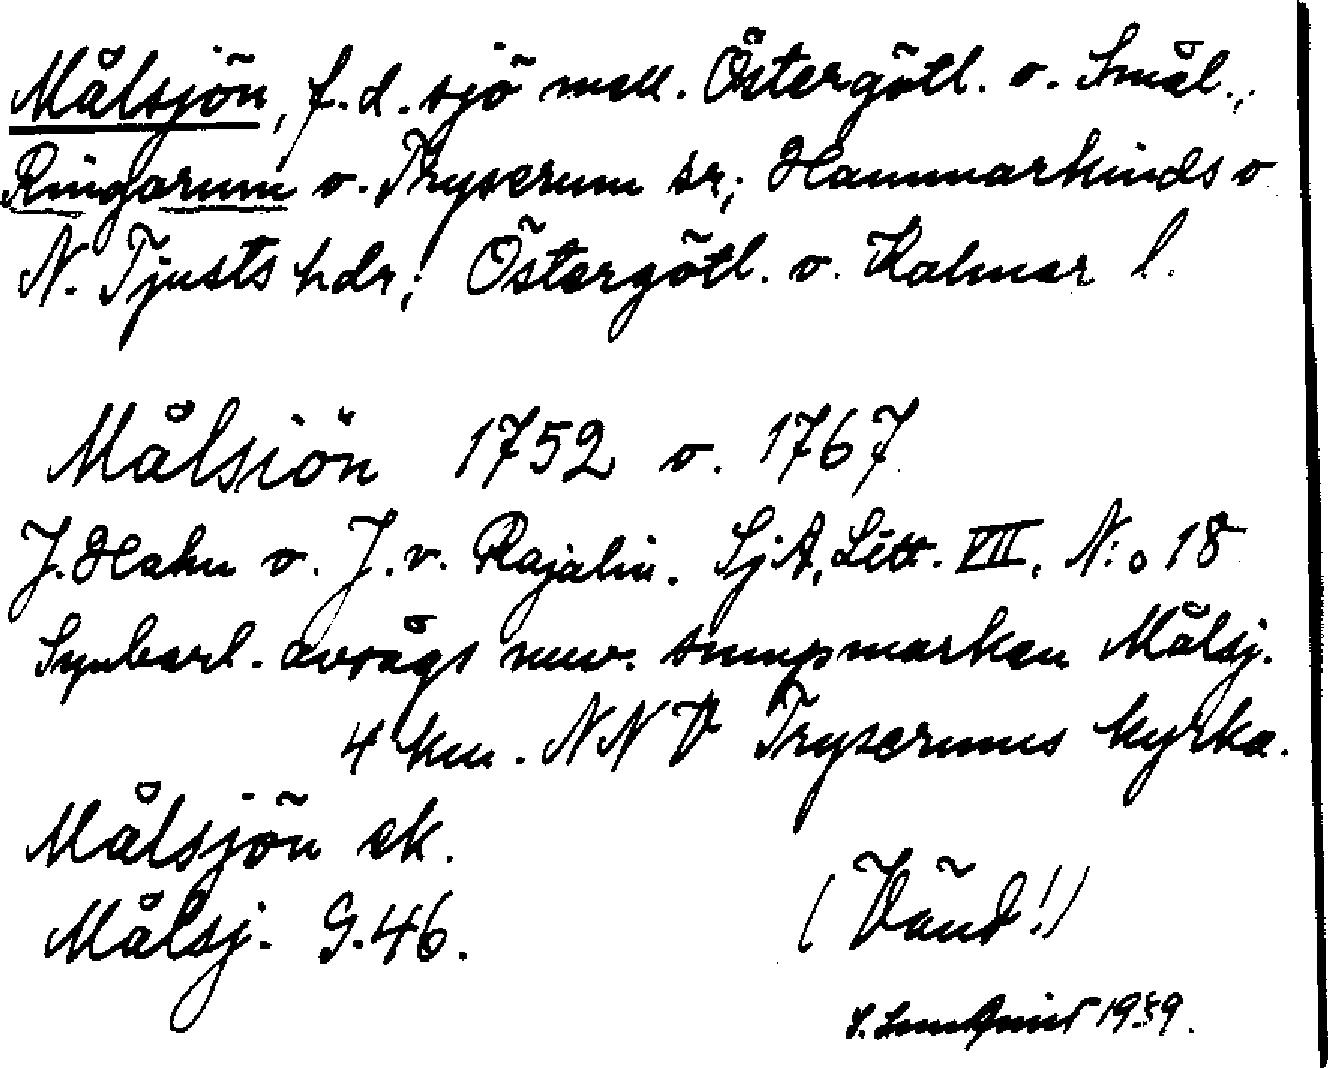 Målsjön, f.d. sjö mell. Östergötl. o. Smål.,
Ringarum o. Tryserum sr; Hammarkinds o
N. Tjusts hdr; Östergötl. o. Kalmar l.
Målsiön 1752 o. 1767
J. Hahn o. J. v. Rajalin. SjA, Litt. VII, N:o 18
Synbarl. avvägs nuv. sumpmarken Målsj.
4 km. NNV Tryserums kyrka.
Målsjön ek.
Målsj. G.46.
(Vänd!)
1939.